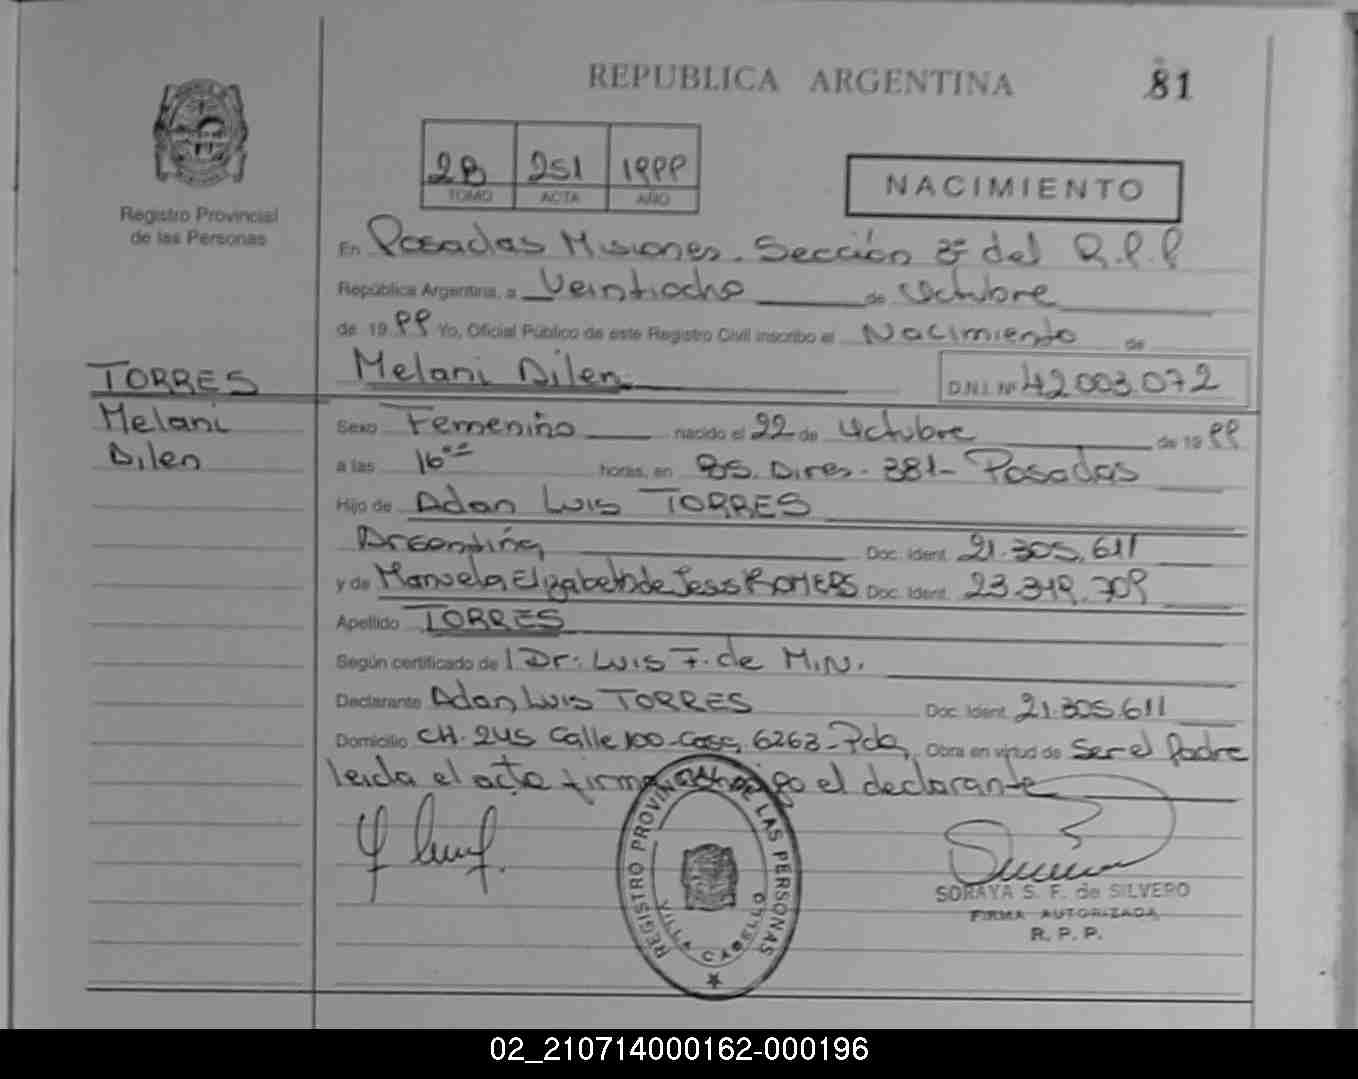 REPUBLICA ARGENTINA
81
Registro Provincial
de las Personas
2B 251 1999
TOMO ACTA AÑO
NACIMIENTO
En Posadas Misiones. Sección 8ª del R.P.P
República Argentina, a Veintiocho de Octubre
de 1999 Yo, Oficial Público de este Registro Civil inscribo el Nacimiento de
TORRES
Melani
Ailen
Melani Ailen
D.N.I. Nº 42.003.072
Sexo Femenino nacido el 22 de Octubre de 1999
a las 16 horas, en Bs. Aires - 381 - Posadas
Hijo de Adan Luis TORRES
Argentina Doc. Ident. 21.305.611
y de Manuela Elizabeth de Jesús ROMERO Doc. Ident. 23.319.709
Apellido TORRES
Según certificado de Dr: Luis F. de M.N.
Declarante Adan Luis TORRES Doc. Ident. 21.305.611
Domicilio CH. 245 Calle 100 - Casa 6263 - Pdas Obra en virtud de Ser el Padre
leida el acta firma conmigo el declarante
REGISTRO PROVINCIAL DE LAS PERSONAS
VILLA CABELLO
SORAYA S. F. de SILVERO
FIRMA AUTORIZADA
R. P. P.
02_210714000162-000196